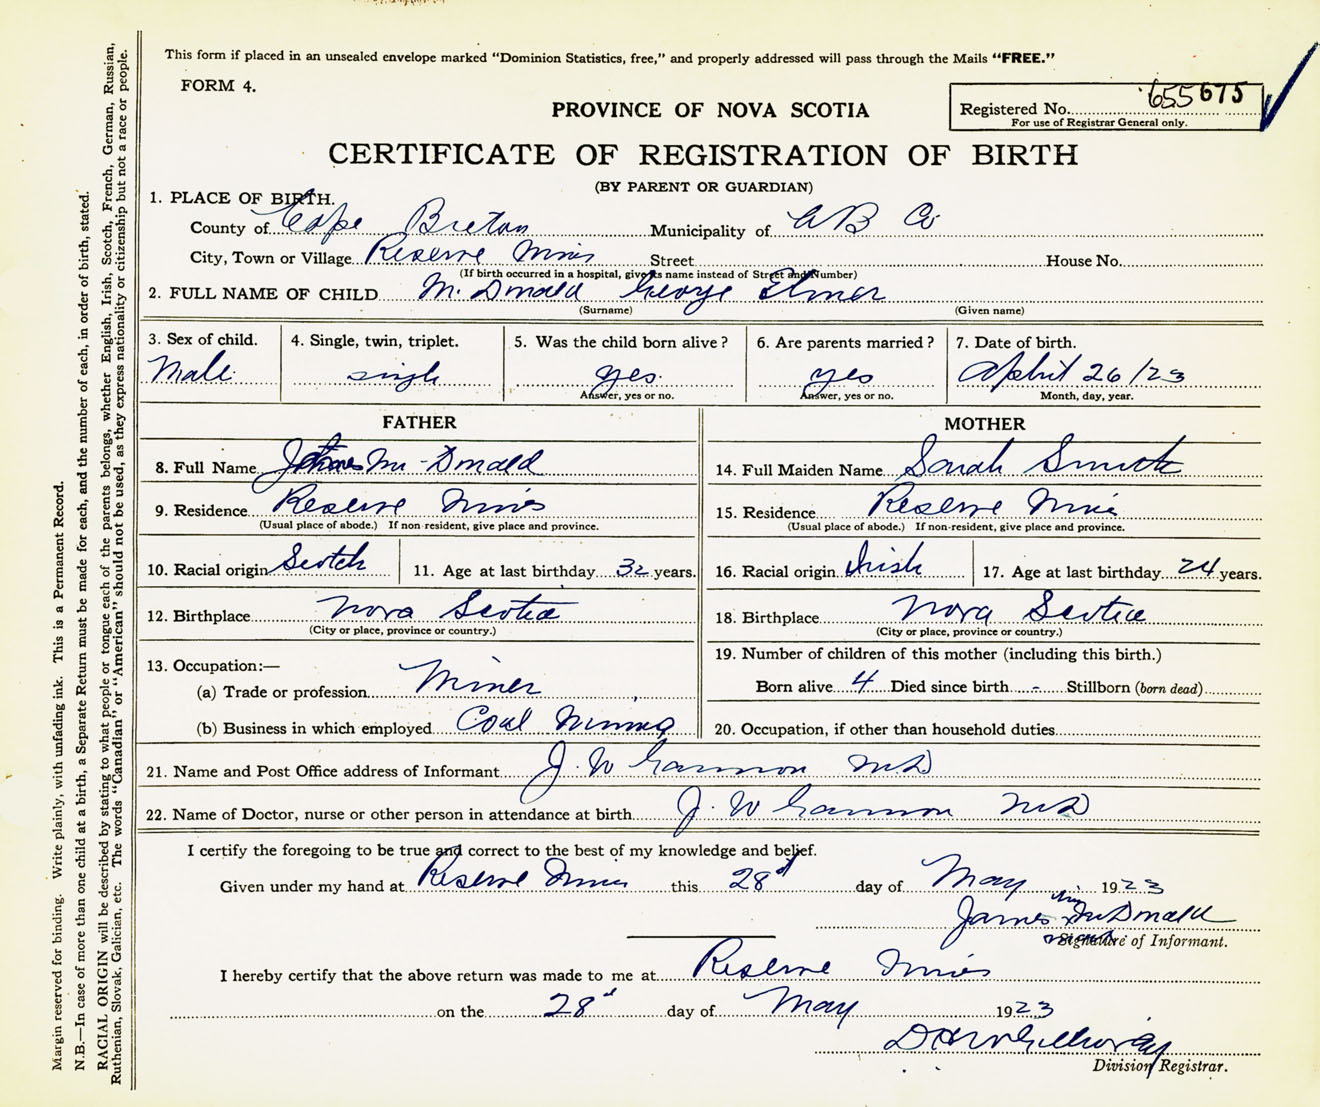 This form if placed in an unsealed envelope marked "Dominion Statistics, free," and properly addressed will pass through the Mails "FREE."
FORM 4.
PROVINCE OF NOVA SCOTIA
Registered No. 655675
For use of Registrar General only.
CERTIFICATE OF REGISTRATION OF BIRTH
(BY PARENT OR GUARDIAN)
1. PLACE OF BIRTH.
County of Cape Breton Municipality of C B Co
City, Town or Village Reserve Mines Street House No.
(If birth occurred in a hospital, give its name instead of Street and Number)
2. FULL NAME OF CHILD McDonald George Elmer
(Surname) (Given name)
3. Sex of child. 4. Single, twin, triplet. 5. Was the child born alive? 6. Are parents married? 7. Date of birth.
Male single yes yes April 26/23
Answer, yes or no. Answer, yes or no. Month, day, year.
FATHER MOTHER
8. Full Name James McDonald 14. Full Maiden Name Sarah Smith
9. Residence Reserve Mines 15. Residence Reserve Mines
(Usual place of abode.) If non-resident, give place and province. (Usual place of abode.) If non-resident, give place and province.
10. Racial origin Scotch 11. Age at last birthday 32 years. 16. Racial origin Irish 17. Age at last birthday 24 years.
12. Birthplace Nova Scotia 18. Birthplace Nova Scotia
(City or place, province or country.) (City or place, province or country.)
13. Occupation:— 19. Number of children of this mother (including this birth.)
(a) Trade or profession Miner Born alive 4 Died since birth - Stillborn (born dead)
(b) Business in which employed Coal Mining 20. Occupation, if other than household duties
21. Name and Post Office address of Informant J. W Gannon M.D
22. Name of Doctor, nurse or other person in attendance at birth J. W Gannon M.D
I certify the foregoing to be true and correct to the best of my knowledge and belief.
Given under my hand at Reserve Mines this 28 day of May 1923
his
James McDonald
mark
Signature of Informant.
I hereby certify that the above return was made to me at Reserve Mines
on the 28 day of May 1923
Division Registrar.
Margin reserved for binding. Write plainly, with unfading ink. This is a Permanent Record.
N.B.—In case of more than one child at a birth, a Separate Return must be made for each, and the number of each, in order of birth, stated.
RACIAL ORIGIN will be described by stating to what people or tongue each of the parents belongs, whether English, Irish, Scotch, French, German, Russian,
Ruthenian, Slovak, Galician, etc. The words "Canadian" or "American" should not be used, as they express nationality or citizenship but not a race or people.